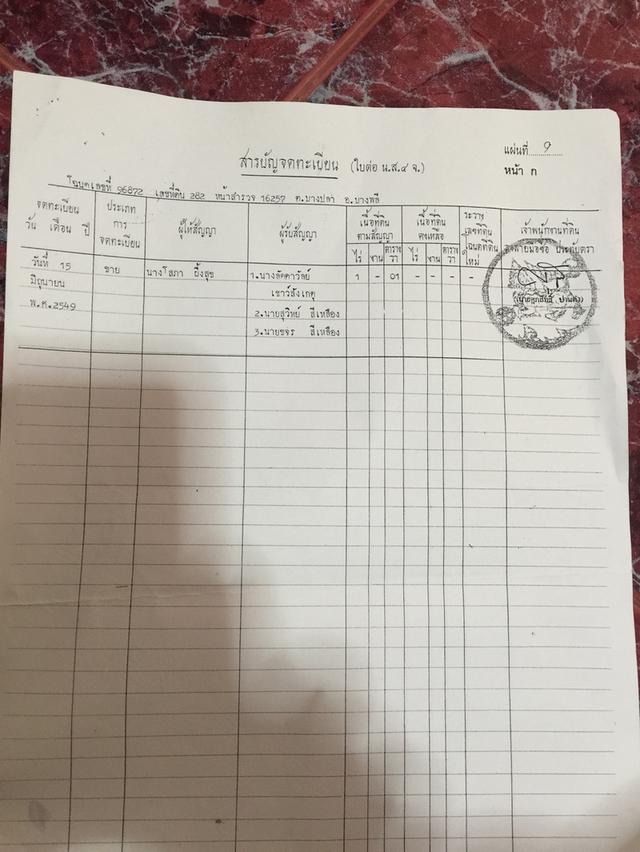 แผ่นที่ 9
สารบัญจดทะเบียน (ใบต่อ น.ส.๔ จ.)
หน้า ก
โฉนดเลขที่ 96872 เลขที่ดิน 282 หน้าสำรวจ 16257 ต.บางปลา อ.บางพลี
จดทะเบียน วัน เดือน ปี
ประเภทการจดทะเบียน
ผู้ให้สัญญา
ผู้รับสัญญา
เนื้อที่ดินตามสัญญา
ไร่ งาน ตารางวา
เนื้อที่ดินคงเหลือ
ไร่ งาน ตารางวา
ระวาง เลขที่ดิน โฉนดที่ดินใหม่
เจ้าพนักงานที่ดิน ลงลายมือชื่อ ประทับตรา
วันที่ 15 ขาย นางโสภา 1.นางลัดดาวัลย์ 1 - 01 - - - -
มิถุนายน เชาว์สังเกตุ
พ.ศ.2549 2.นายสุวิทย์ สีเหลือง
3.นายขจร สีเหลือง